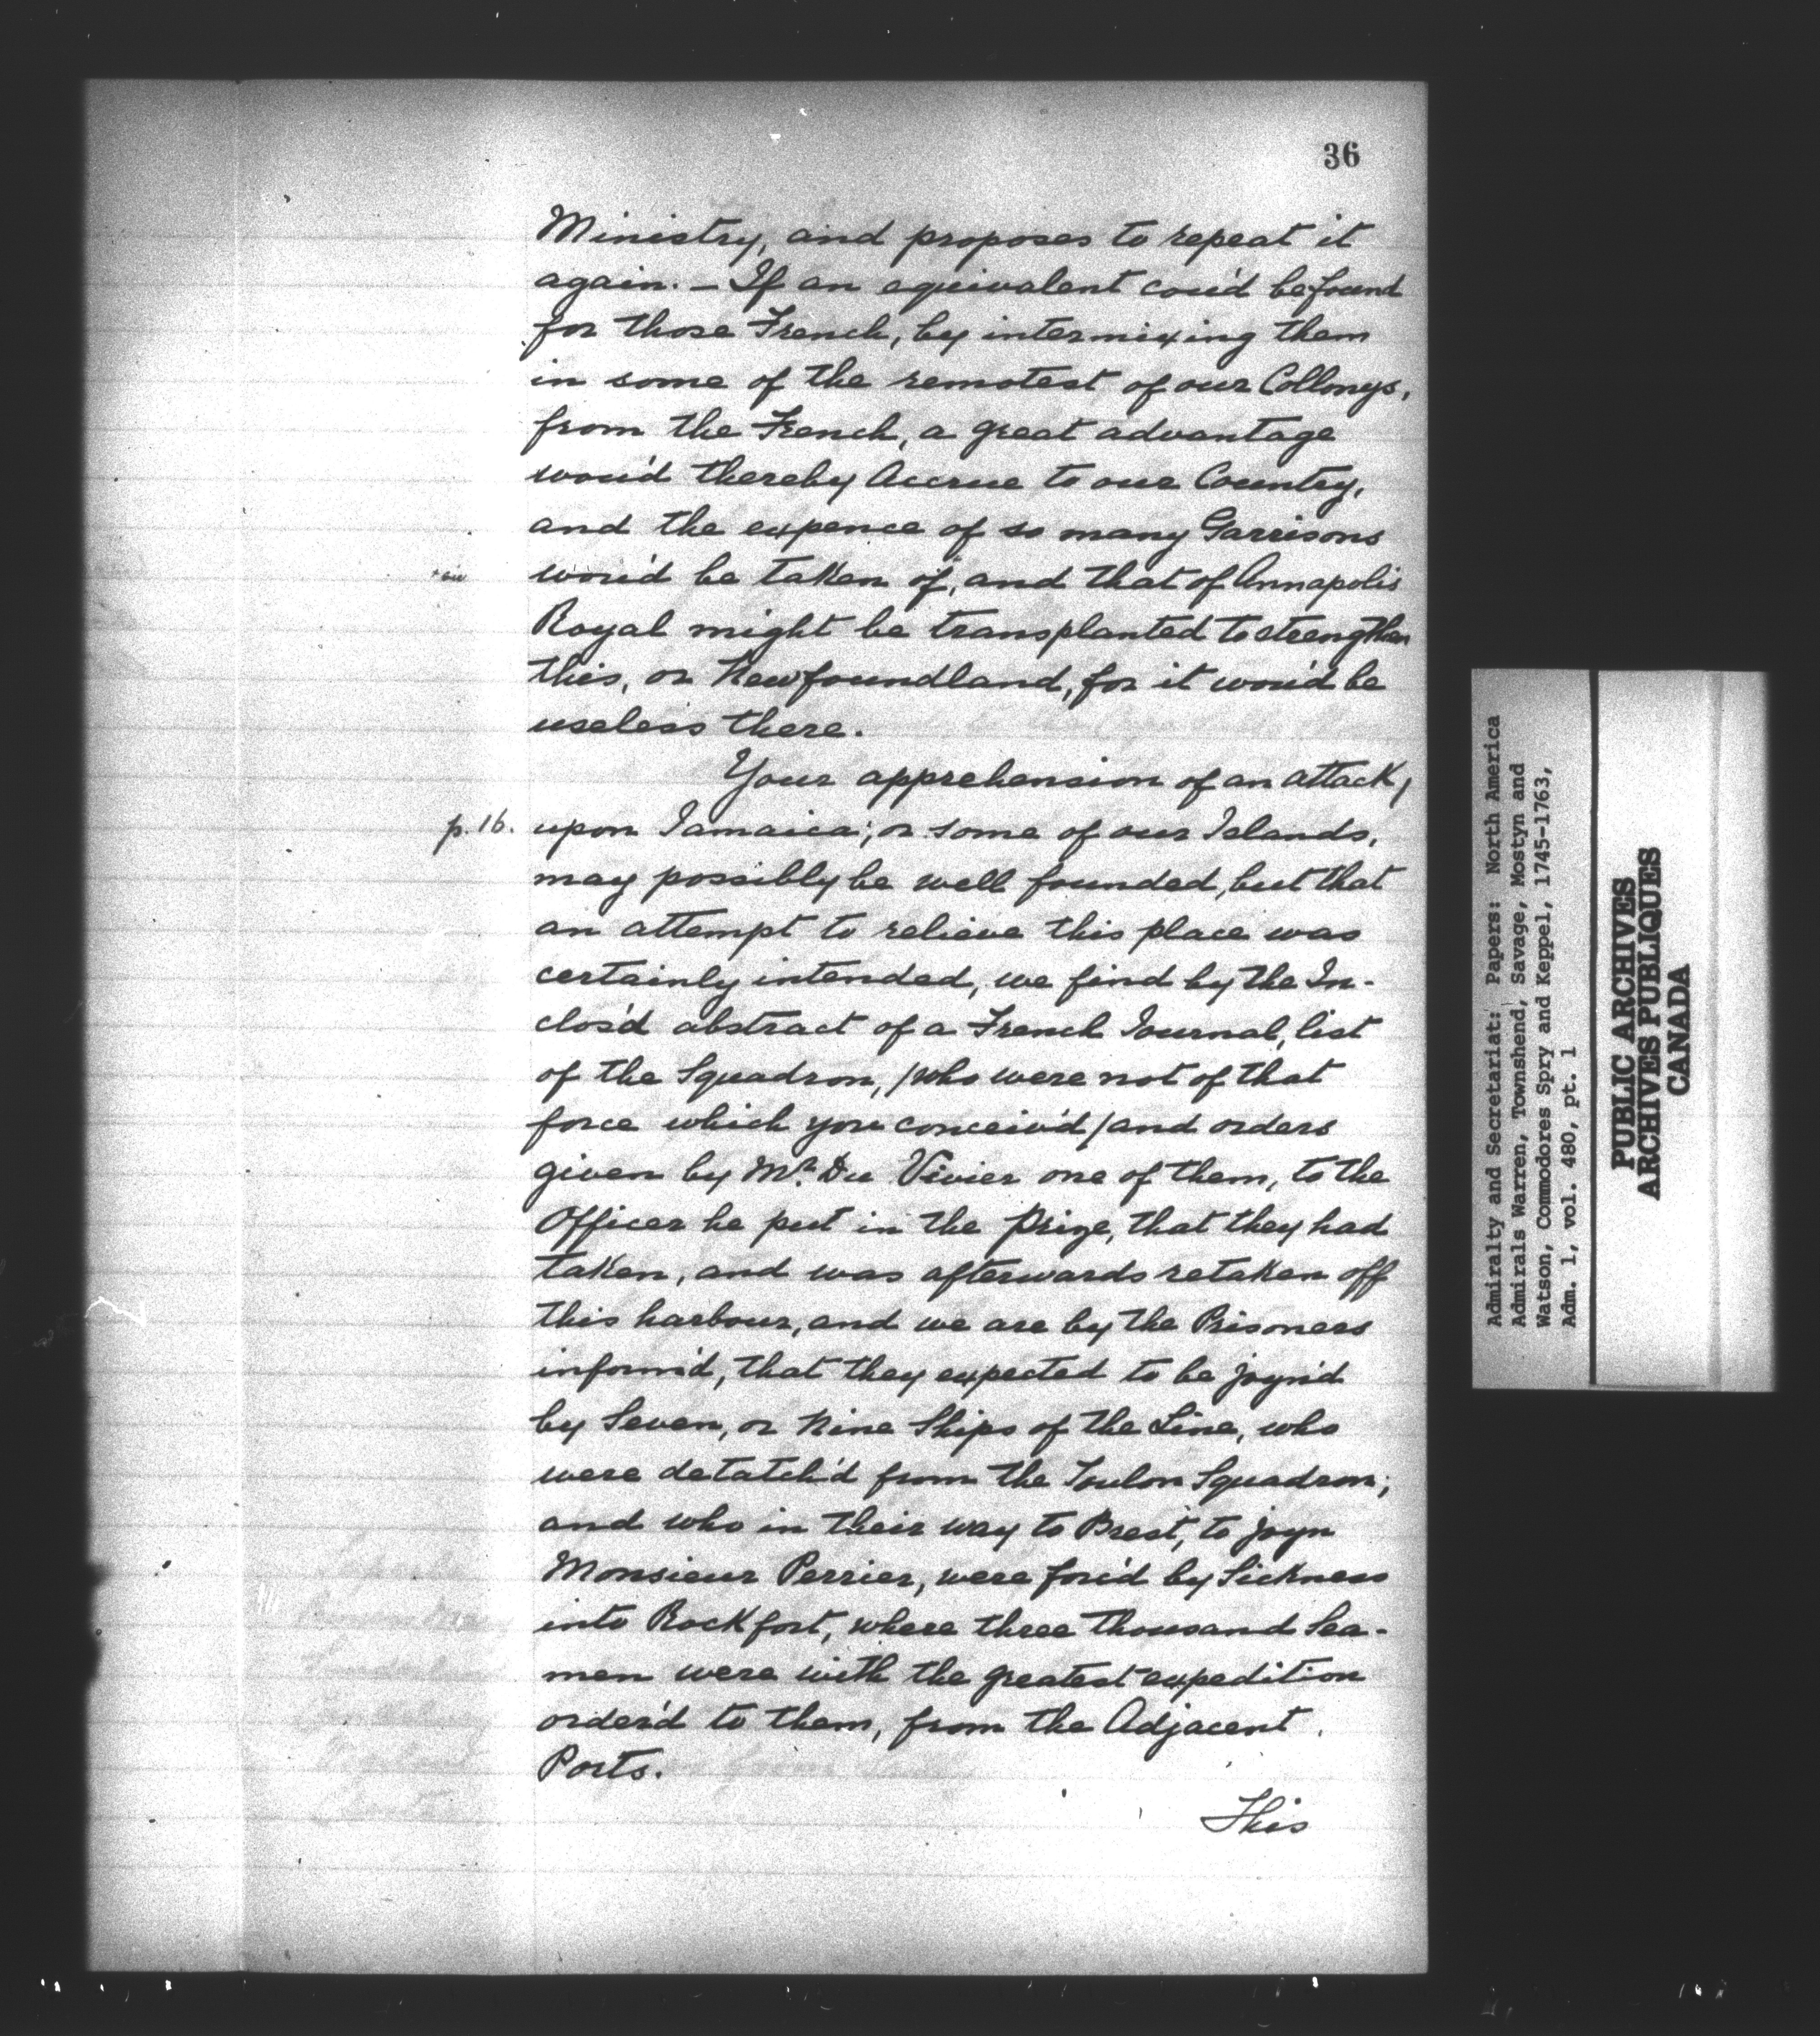 36
Ministry, and proposes to repeat it
again. — If an equivalent cou'd be found
for those French, by intermixing them
in some of the remotest of our Collonys,
from the French, a great advantage
wou'd thereby Accrue to our Country,
and the expence of so many Garrisons
wou'd be taken of, and that of Annapolis
Royal might be transplanted to strengthen
this, or Newfoundland, for it wou'd be
useless there.
Your apprehension of an attack,
p. 16. upon Jamaica; or some of our Islands,
may possibly be well founded, but that
an attempt to relieve this place was
certainly intended, we find by the In-
clos'd abstract of a French Journal, list
of the Squadron, /who were not of that
force which you conceiv'd/ and orders
given by Mr. Du Vivier one of them, to the
Officer he put in the Prize, that they had
taken, and was afterwards retaken off
this harbour, and we are by the Prisoners
inform'd, that they expected to be joyn'd
by Seven, or Nine Ships of the Line, who
were detatch'd from the Toulon Squadron;
and who in their way to Brest, to joyn
Monsieur Perrier, were forc'd by Sickness
into Rockfort, where three thousand Sea-
men were with the greatest expedition
order'd to them, from the Adjacent
Ports.
This
Admiralty and Secretariat: Papers: North America
Admirals Warren, Townshend, Savage, Mostyn and
Watson, Commodores Spry and Keppel, 1745-1763,
Adm. 1, vol. 480, pt. 1
PUBLIC ARCHIVES
ARCHIVES PUBLIQUES
CANADA